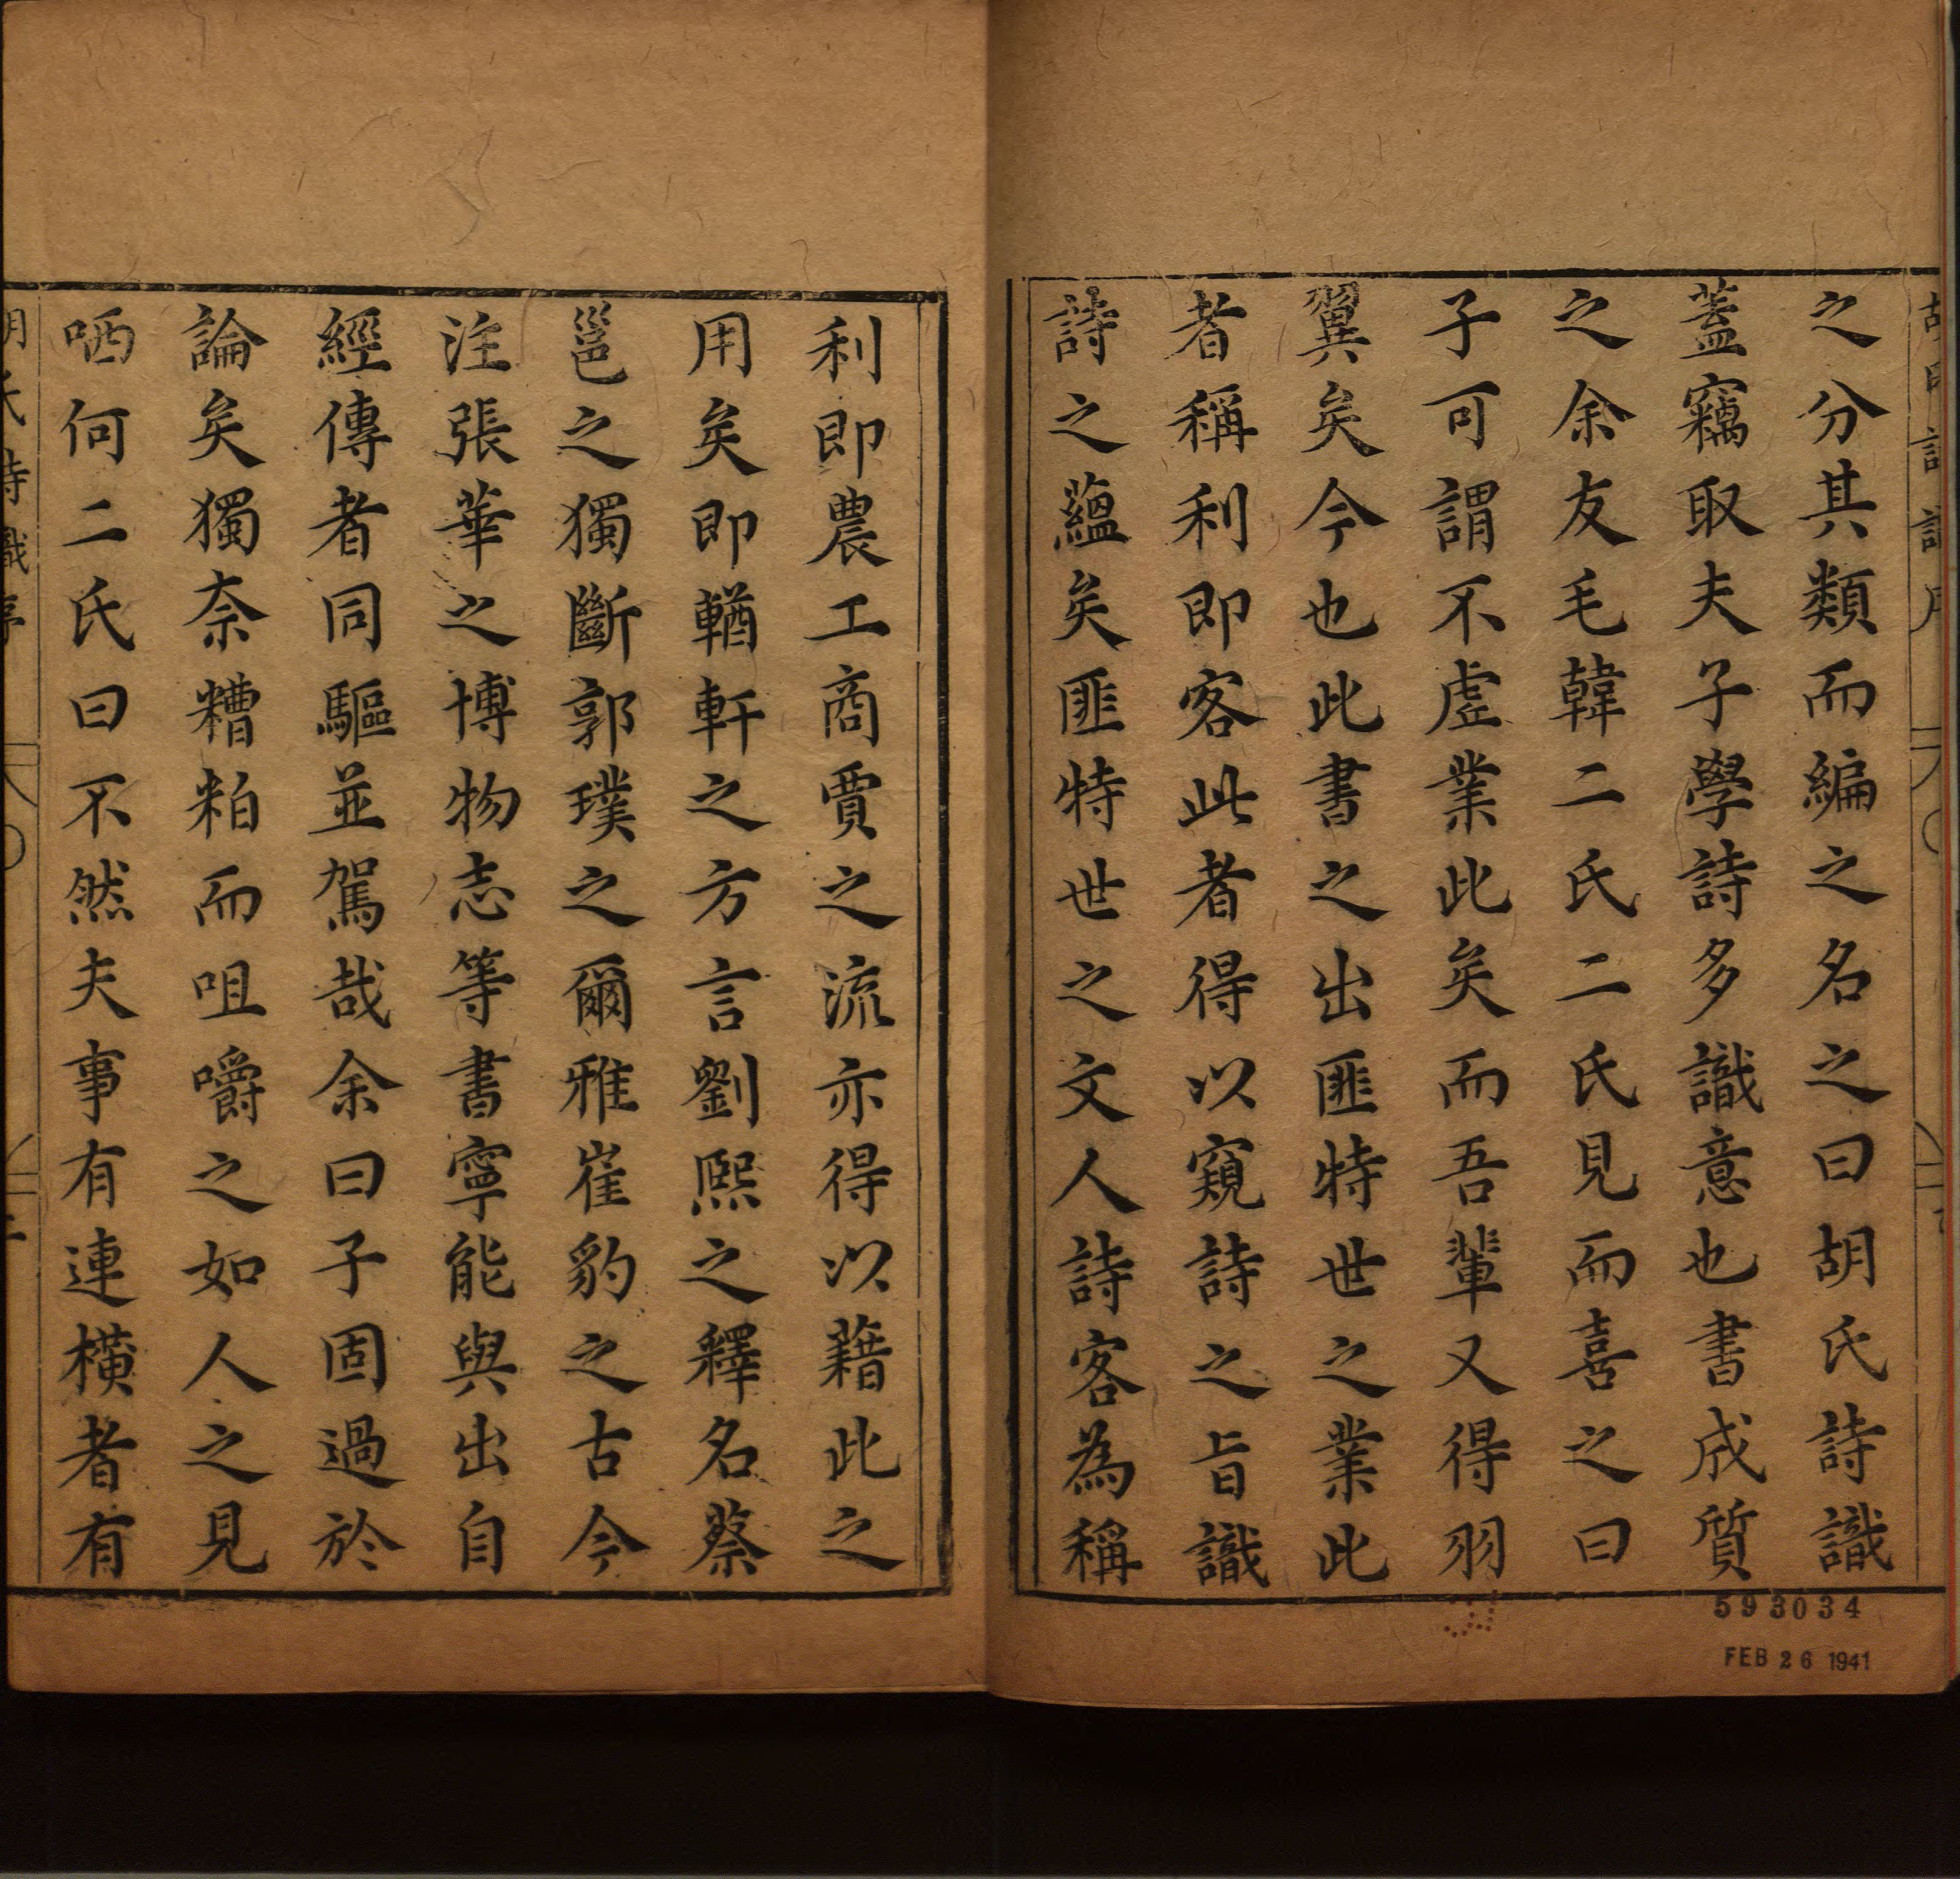 之分其類而編之名之曰胡氏詩識
蓋竊取夫子學詩多識意也書成質
之余友毛韓二氏二氏見而喜之曰
子可謂不虛業此矣而吾輩又得羽
翼矣今也此書之出匪特世之業此
者稱利即客此者得以窺詩之旨識
詩之蘊矣匪特世之文人詩客為稱
利即農工商賈之流亦得以藉此之
用矣即輶軒之方言劉熙之釋名蔡
邕之獨斷郭璞之爾雅崔豹之古今
注張華之博物志等書寧能與出自
經傳者同驅並駕哉余曰子固過於
論矣獨奈糟粕而咀嚼之如人之見
哂何二氏曰不然夫事有連橫者有
593034
FEB 26 1941